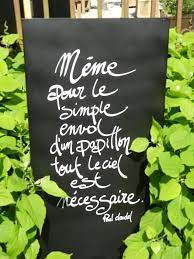 Même
pour le
simple
envol
d'un papillon
tout le ciel
est
nécessaire.
Paul claudel